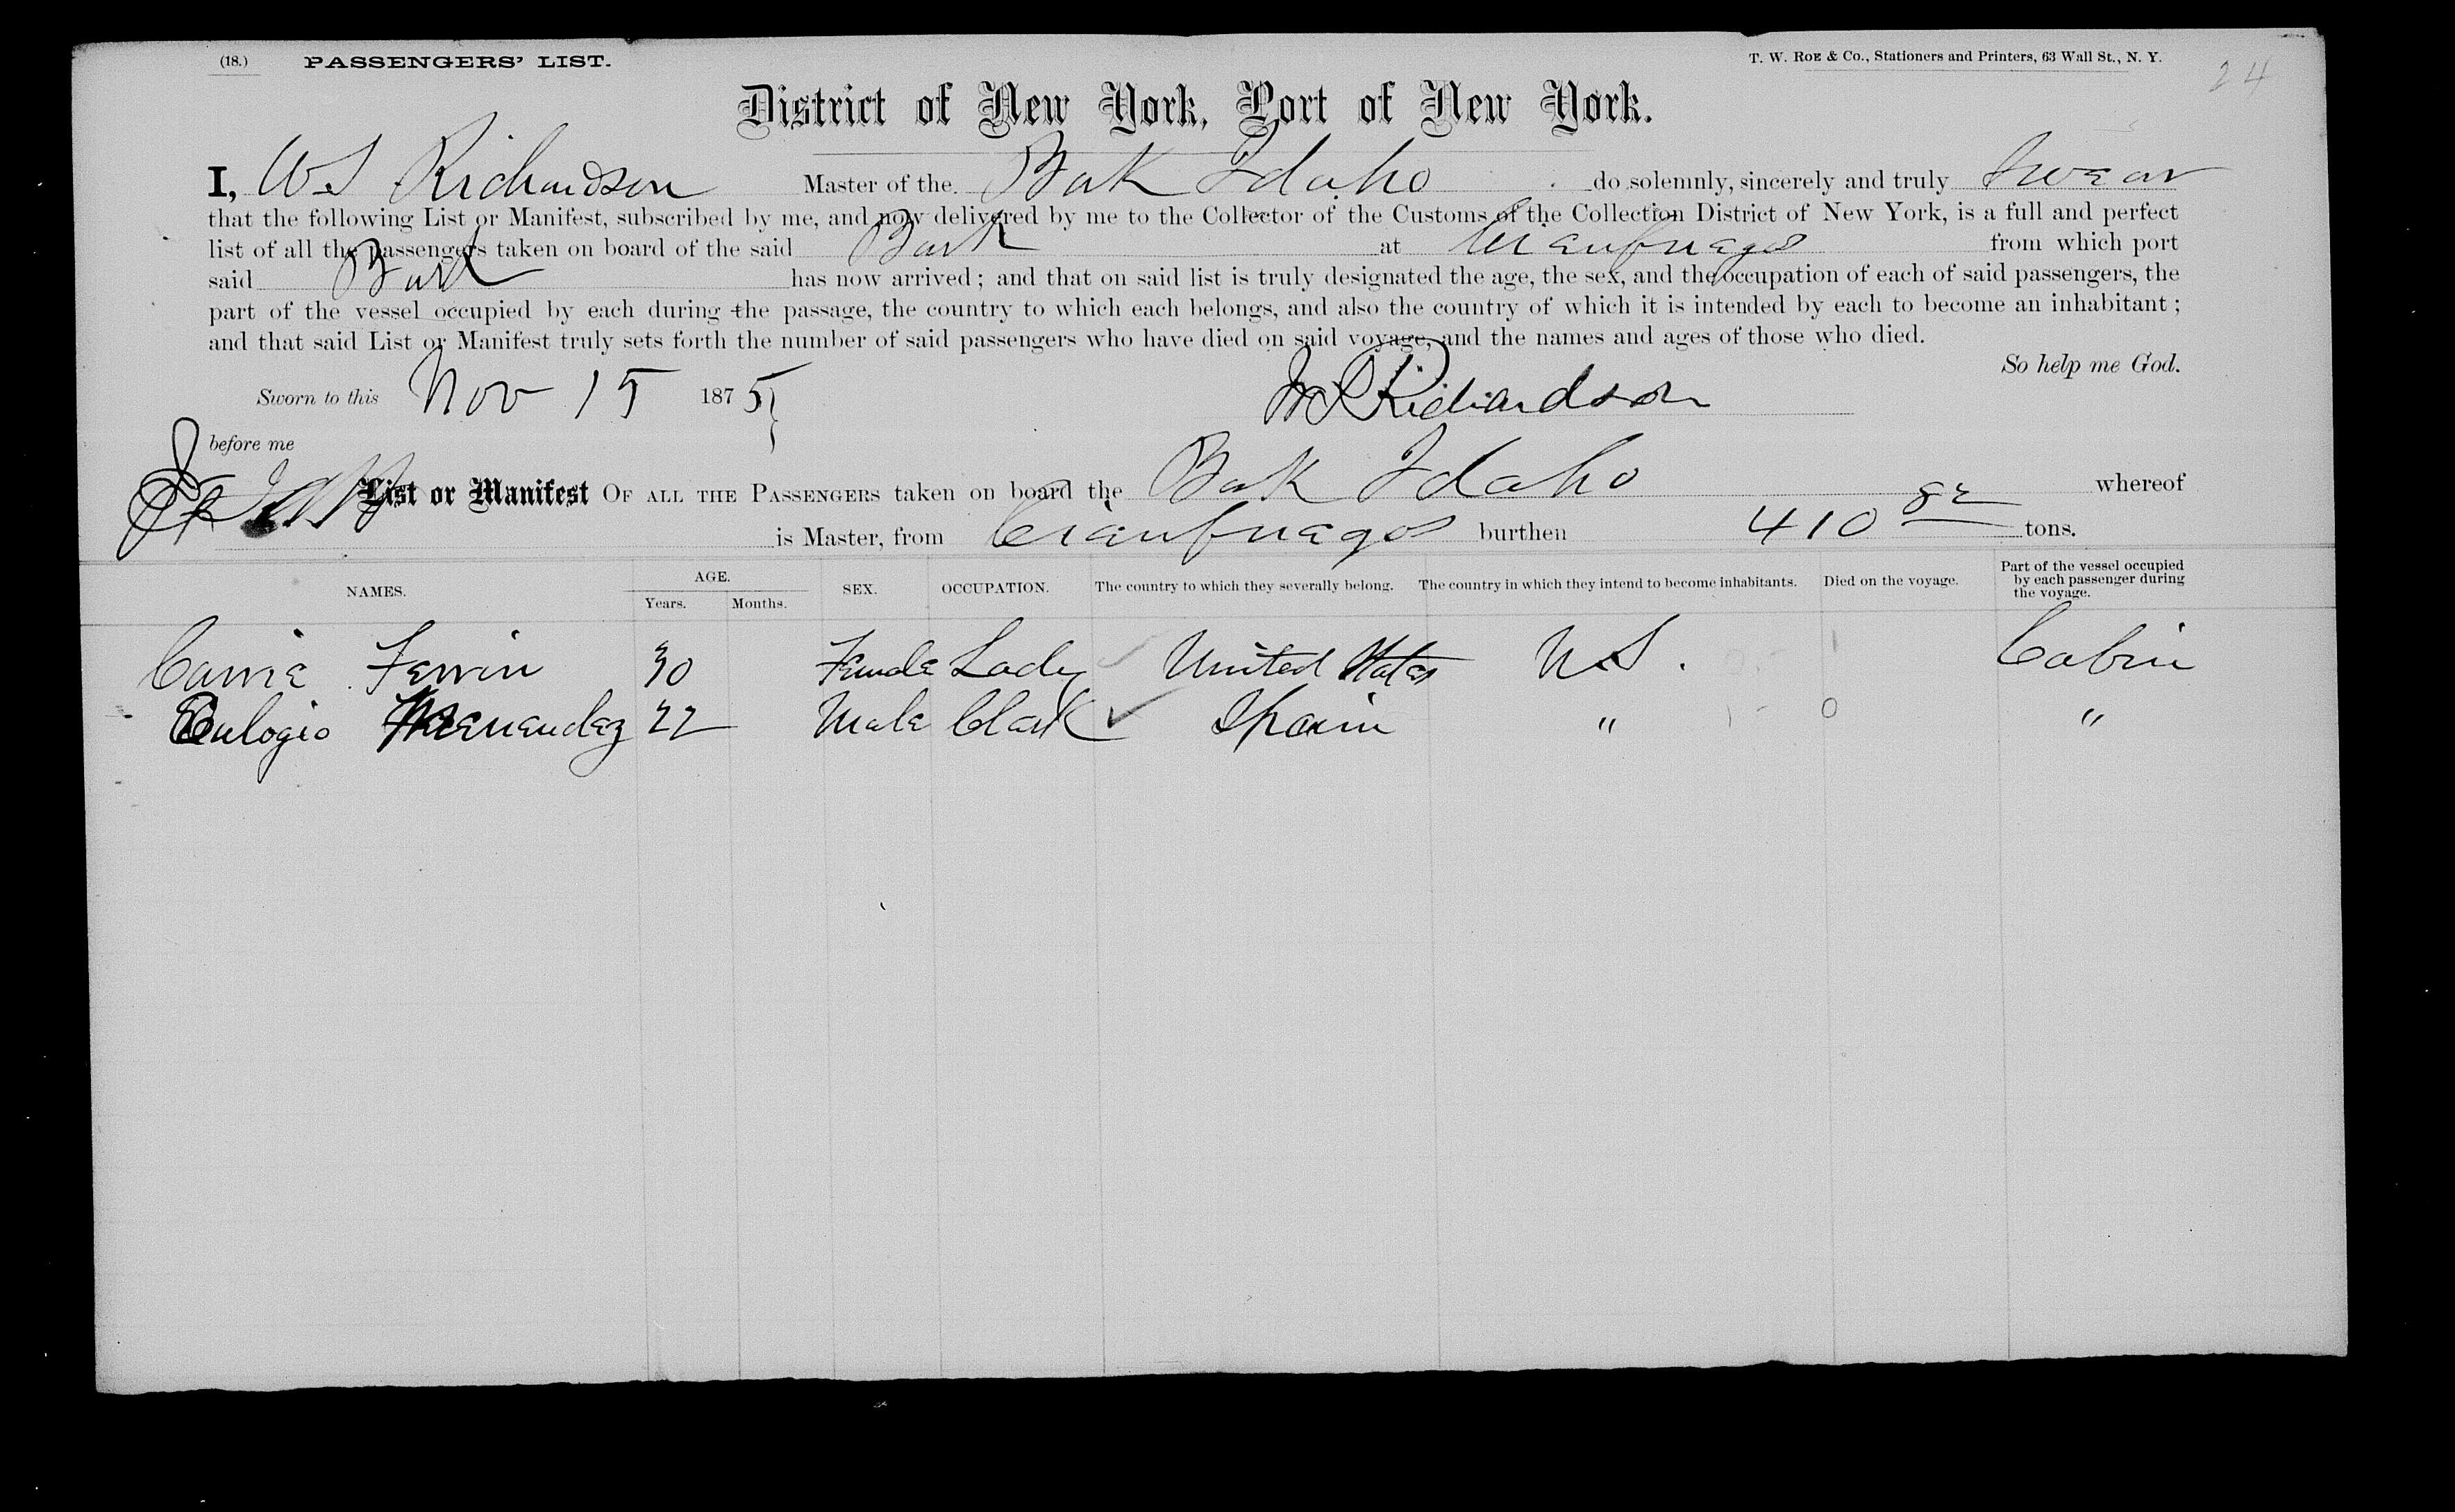 (18.) PASSENGERS' LIST. T. W. ROE & Co., Stationers and Printers, 63 Wall St., N. Y. 24
District of New York, Port of New York.
I, W S Richardson Master of the Bark Idaho do solemnly, sincerely and truly Swear
that the following List or Manifest, subscribed by me, and now delivered by me to the Collector of the Customs of the Collection District of New York, is a full and perfect
list of all the passengers taken on board of the said Bark at Cianfuagos from which port
said Bark has now arrived; and that on said list is truly designated the age, the sex, and the occupation of each of said passengers, the
part of the vessel occupied by each during the passage, the country to which each belongs, and also the country of which it is intended by each to become an inhabitant;
and that said List or Manifest truly sets forth the number of said passengers who have died on said voyage, and the names and ages of those who died.
So help me God.
Sworn to this Nov 15 1875 W S Richardson
before me
List or Manifest OF ALL THE PASSENGERS taken on board the Bark Idaho whereof
is Master, from Cianfuagos burthen 410 82 tons.
NAMES. AGE. Years. Months. SEX. OCCUPATION. The country to which they severally belong. The country in which they intend to become inhabitants. Died on the voyage. Part of the vessel occupied by each passenger during the voyage.
Carrie Ferrin 30 Female Lady United States U S. Cabin
Eulogio Menendez 22 Male Clark ✓ Spain " 0 "